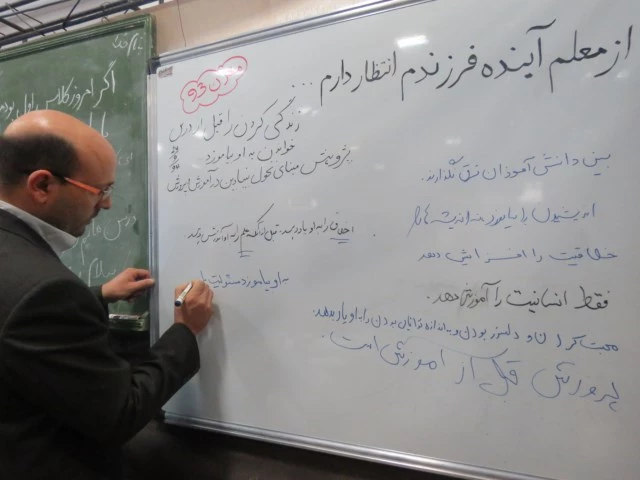 از معلم آینده فرزندم انتظار دارم ...
زندگی کردن را قبل از درس
خواندن به او بیاموزد
پژوهش مبنای تحول بنیادین در آموزش پرورش
اخلاق را به او یاد بدهد قبل از آنکه هم را به او آموزش دهد
- او بیاموزد مسئولیت
بین دانش آموزان فرق نگذارند.
اندیشیدن را بیاموزد نه اندیشه ها را
خلاقیت را افزایش دهد
فقط انسانیت را آموزش دهد.
محبت کردن و دلسوز بودن و به اندازه توانش بودن را به او یاد بدهد.
پرورش قبل از آموزش است.
به نام خدا
اگر امروز کلاس اول بودم